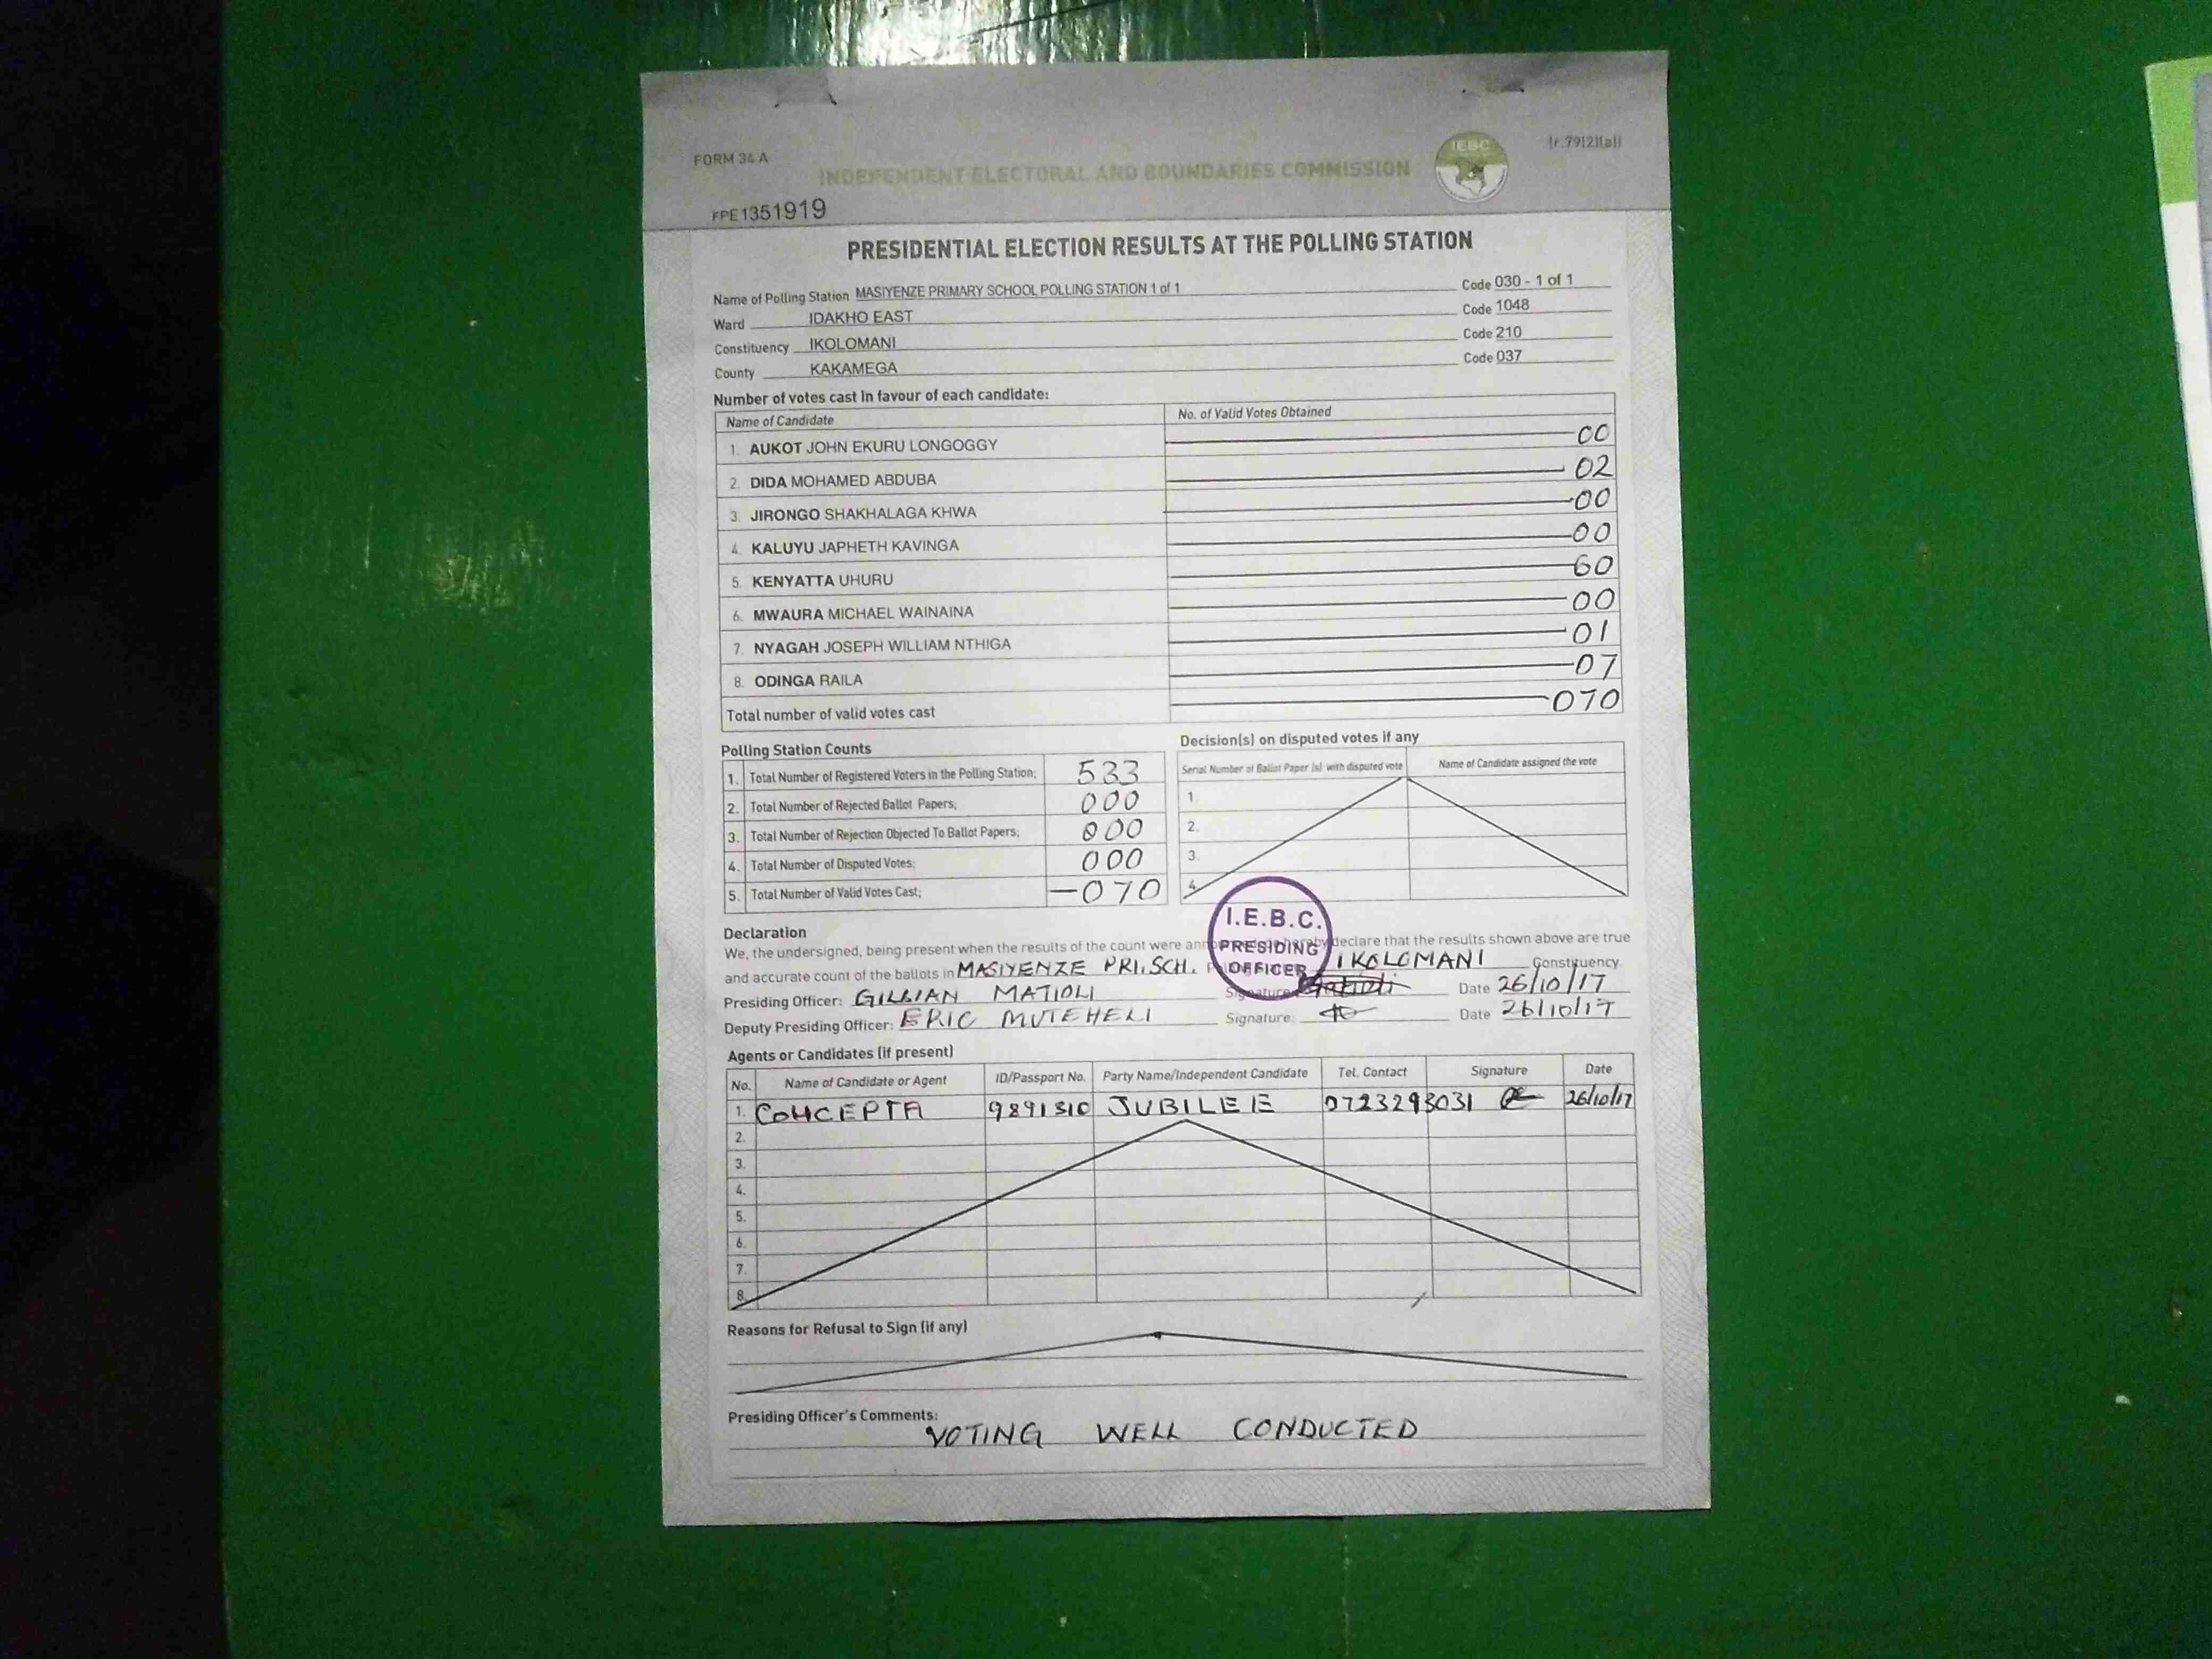 FORM 34 A
INDEPENDENT ELECTORAL AND BOUNDARIES COMMISSION
IEBC
(r.79(2)(a))
FPE1351919
PRESIDENTIAL ELECTION RESULTS AT THE POLLING STATION
Name of Polling Station MASIYENZE PRIMARY SCHOOL POLLING STATION 1 of 1 Code 030 - 1 of 1
Ward IDAKHO EAST Code 1048
Constituency IKOLOMANI Code 210
County KAKAMEGA Code 037
Number of votes cast in favour of each candidate:
Name of Candidate No. of Valid Votes Obtained
1. AUKOT JOHN EKURU LONGOGGY 00
2. DIDA MOHAMED ABDUBA 02
3. JIRONGO SHAKHALAGA KHWA 00
4. KALUYU JAPHETH KAVINGA 00
5. KENYATTA UHURU 60
6. MWAURA MICHAEL WAINAINA 00
7. NYAGAH JOSEPH WILLIAM NTHIGA 01
8. ODINGA RAILA 07
Total number of valid votes cast 070
Polling Station Counts
1. Total Number of Registered Voters in the Polling Station; 533
2. Total Number of Rejected Ballot Papers; 000
3. Total Number of Rejection Objected To Ballot Papers; 000
4. Total Number of Disputed Votes; 000
5. Total Number of Valid Votes Cast; 070
Decision(s) on disputed votes if any
Serial Number of Ballot Paper (s) with disputed vote Name of Candidate assigned the vote
1.
2.
3.
4.
I.E.B.C.
PRESIDING
OFFICER
Declaration
We, the undersigned, being present when the results of the count were hereby declare that the results shown above are true
and accurate count of the ballots in MASIYENZE PRI.SCH. IKOLOMANI Constituency.
Presiding Officer: GILLIAN MATIOLI Signature: Matioli Date 26/10/17
Deputy Presiding Officer: ERIC MUTEHELI Signature: Date 26/10/17
Agents or Candidates (if present)
No. Name of Candidate or Agent ID/Passport No. Party Name/Independent Candidate Tel. Contact Signature Date
1. CONCEPTA 9891310 JUBILEE 0723293031 26/10/17
2.
3.
4.
5.
6.
7.
8.
Reasons for Refusal to Sign (if any)
Presiding Officer's Comments:
VOTING WELL CONDUCTED